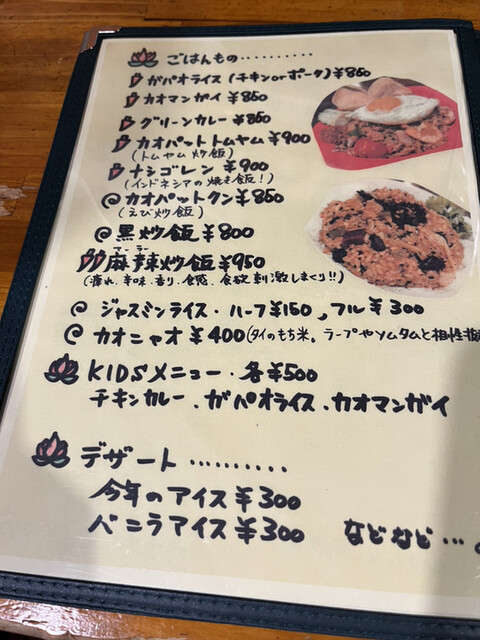 ごはんもの‥‥‥‥‥
ガパオライス (チキンorポーク) ¥850
カオマンガイ ¥850
グリーンカレー ¥850
カオパットトムヤム ¥900
(トムヤム炒飯)
ナシゴレン ¥900
(インドネシアの焼き飯!)
カオパットクン ¥850
(えび炒飯)
黒炒飯 ¥800
マーラー
麻辣炒飯 ¥950
(痺れ、辛味、香り、食感、食欲刺激しまくり!!)
ジャスミンライス・ハーフ¥150, フル¥300
カオニャオ ¥400 (タイのもち米。ラープやソムタムと相性
KIDSメニュー・各¥500
チキンカレー.ガパオライス.カオマンガイ
デザート ‥‥‥‥‥
今年のアイス ¥300
バニラアイス ¥300 などなど…。